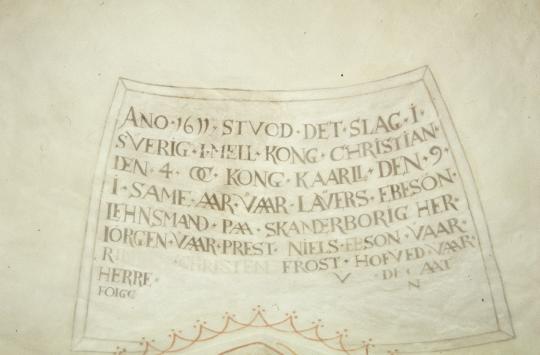 ANO · 1611 · STVOD · DET · SLAG · I ·
SVERIG · I·MELL · KONG · CHRISTIAN ·
DEN · 4 · OC · KONG · KAARIL · DEN · 9 ·
I · SAME · AAR · VAAR · LAVERS · EBESØN ·
LEHNSMAND · PAA · SKANDERBORIG HER ·
IØRGEN · VAAR · PREST · NIELS · EBSON · VAAR ·
CHRISTEN FROST · HOFVED · VAAR ·
HERRE